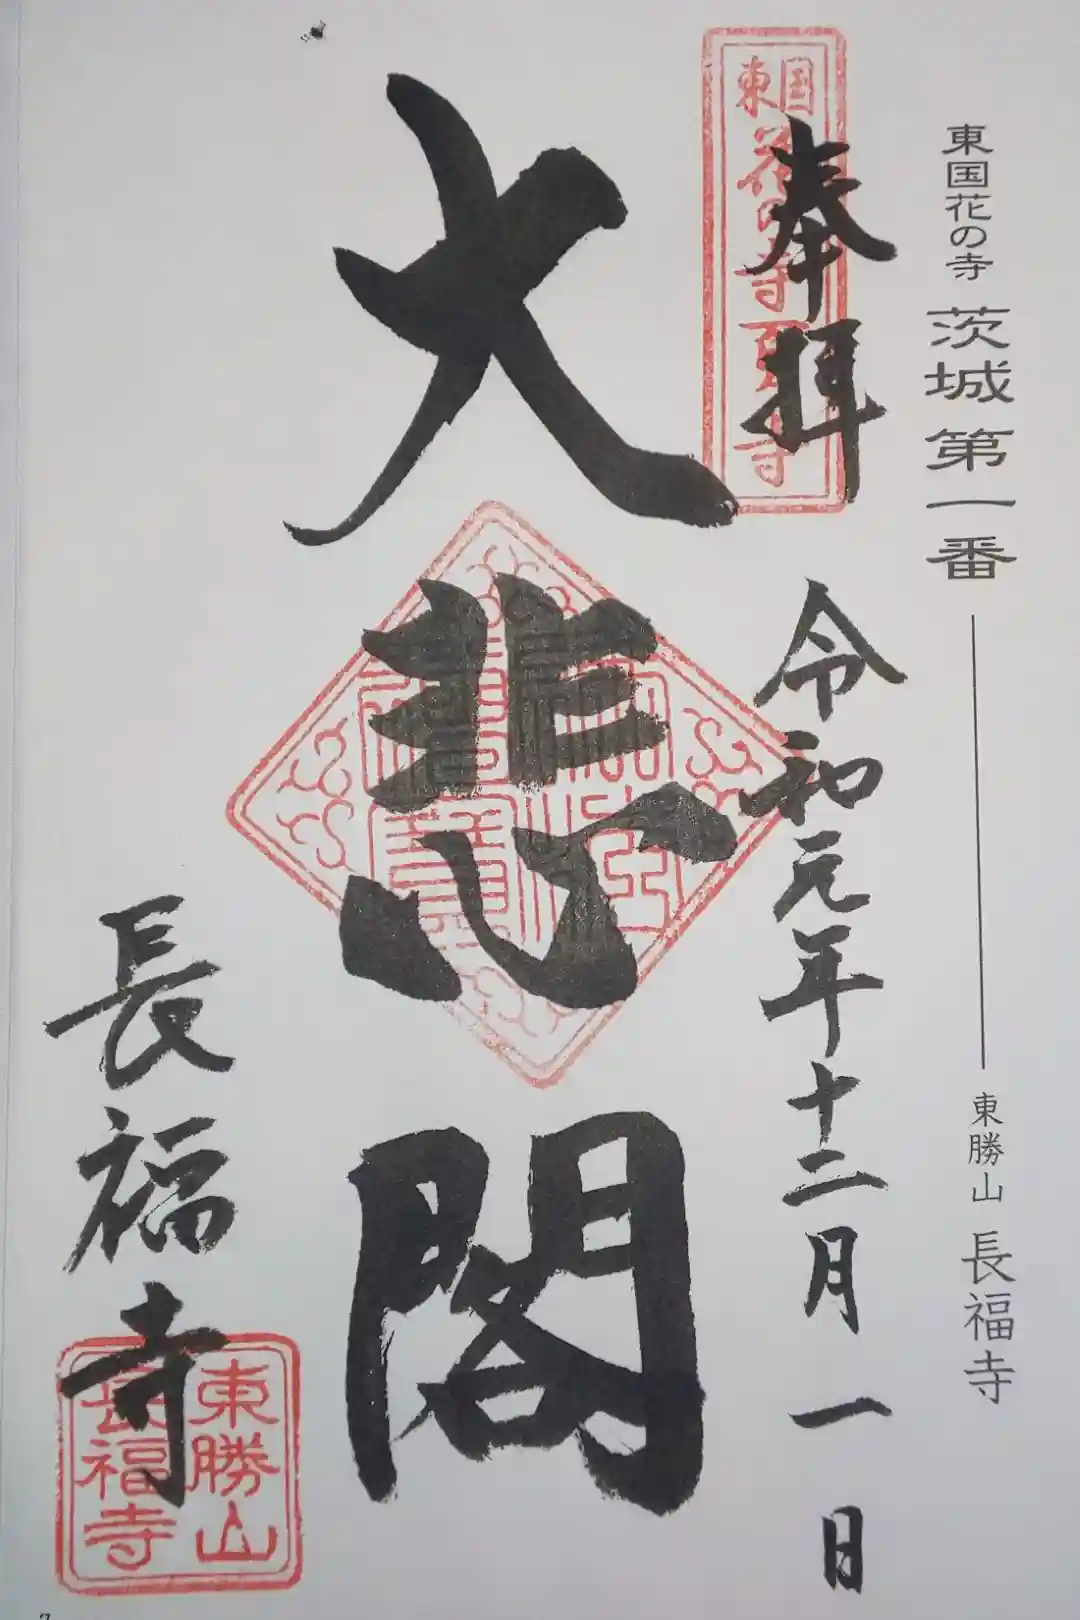 東国花の寺 茨城第一番 東勝山 長福寺
奉拝 令和元年十二月一日
東国花の寺百ヶ寺
大悲閣
長福寺
東勝山
長福寺